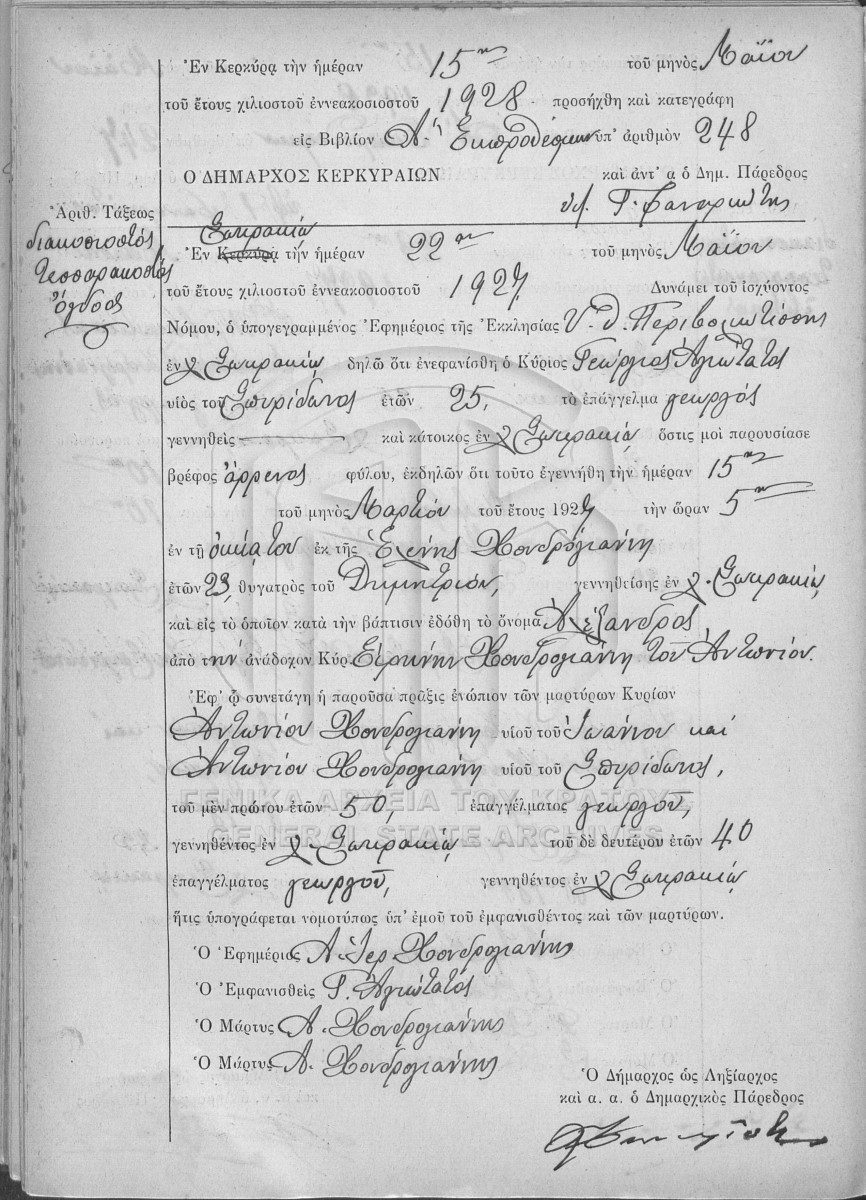 Ἐν Κερκύρᾳ τὴν ἡμέραν 15ην τοῦ μηνὸς Μαΐου
τοῦ ἔτους χιλιοστοῦ ἐννεακοσιοστοῦ 1928 προσήχθη καὶ κατεγράφη
εἰς Βιβλίον Α. Ἐκπροθέσμων ὑπ' ἀριθμὸν 248
Ο ΔΗΜΑΡΧΟΣ ΚΕΡΚΥΡΑΙΩΝ καὶ ἀντ' α ὁ Δημ. Πάρεδρος
Γ. Φαναριώτης
Ἀριθ. Τάξεως
διακοσιοστός
τεσσαρακοστός
ὄγδοος
Σωκρακίῳ
Ἐν Κερκύρᾳ τὴν ἡμέραν 22αν τοῦ μηνὸς Μαΐου
τοῦ ἔτους χιλιοστοῦ ἐννεακοσιοστοῦ 1927 Δυνάμει τοῦ ἰσχύοντος
Νόμου, ὁ ὑπογεγραμμένος Ἐφημέριος τῆς Ἐκκλησίας Υ. Θ. Περιβολιωτίσσης
ἐν χ Σωκρακίῳ δηλῶ ὅτι ἐνεφανίσθη ὁ Κύριος Γεώργιος Ἀγιωτάτος
υἱὸς τοῦ Σπυρίδωνος ἐτῶν 25, τὸ ἐπάγγελμα γεωργός
γεννηθεὶς καὶ κάτοικος ἐν χ Σωκρακίῳ ὅστις μοὶ παρουσίασε
βρέφος ἄρρενος φύλου, ἐκδηλῶν ὅτι τοῦτο ἐγεννήθη τὴν ἡμέραν 15ην
τοῦ μηνὸς Μαρτίου τοῦ ἔτους 1927 τὴν ὥραν 5ην
ἐν τῇ οἰκίᾳ του ἐκ τῆς Ἑλένης Χονδρογιάννη
ἐτῶν 23, θυγατρὸς τοῦ Δημητρίου, γεννηθείσης ἐν χ. Σωκρακίῳ
καὶ εἰς τὸ ὁποῖον κατὰ τὴν βάπτισιν ἐδόθη τὸ ὄνομα Ἀλέξανδρος,
ἀπὸ τὴν ἀνάδοχον Κύρ Εἰρήνην Χονδρογιάννη τοῦ Ἀντωνίου.
Ἐφ' ᾧ συνετάγη ἡ παροῦσα πρᾶξις ἐνώπιον τῶν μαρτύρων Κυρίων
Ἀντωνίου Χονδρογιάννη υἱοῦ τοῦ Ἰωάννου καὶ
Ἀντωνίου Χονδρογιάννη υἱοῦ τοῦ Σπυρίδωνος,
τοῦ μὲν πρώτου ἐτῶν 50, ἐπαγγέλματος γεωργοῦ,
γεννηθέντος ἐν χ. Σωκρακίῳ τοῦ δὲ δευτέρου ἐτῶν 40
ἐπαγγέλματος γεωργοῦ, γεννηθέντος ἐν χ Σωκρακίῳ
ἥτις ὑπογράφεται νομοτύπως ὑπ' ἐμοῦ τοῦ ἐμφανισθέντος καὶ τῶν μαρτύρων.
Ὁ Ἐφημέριος Α. Ἱερ. Χονδρογιάννης
Ὁ Ἐμφανισθεὶς Γ. Ἀγιωτάτος
Ὁ Μάρτυς Α. Χονδρογιάννης
Ὁ Μάρτυς Α. Χονδρογιάννης
Ὁ Δήμαρχος ὡς Ληξίαρχος
καὶ α. α. ὁ Δημαρχικὸς Πάρεδρος
ΓΕΝΙΚΑ ΑΡΧΕΙΑ ΤΟΥ ΚΡΑΤΟΥΣ
GENERAL STATE ARCHIVES